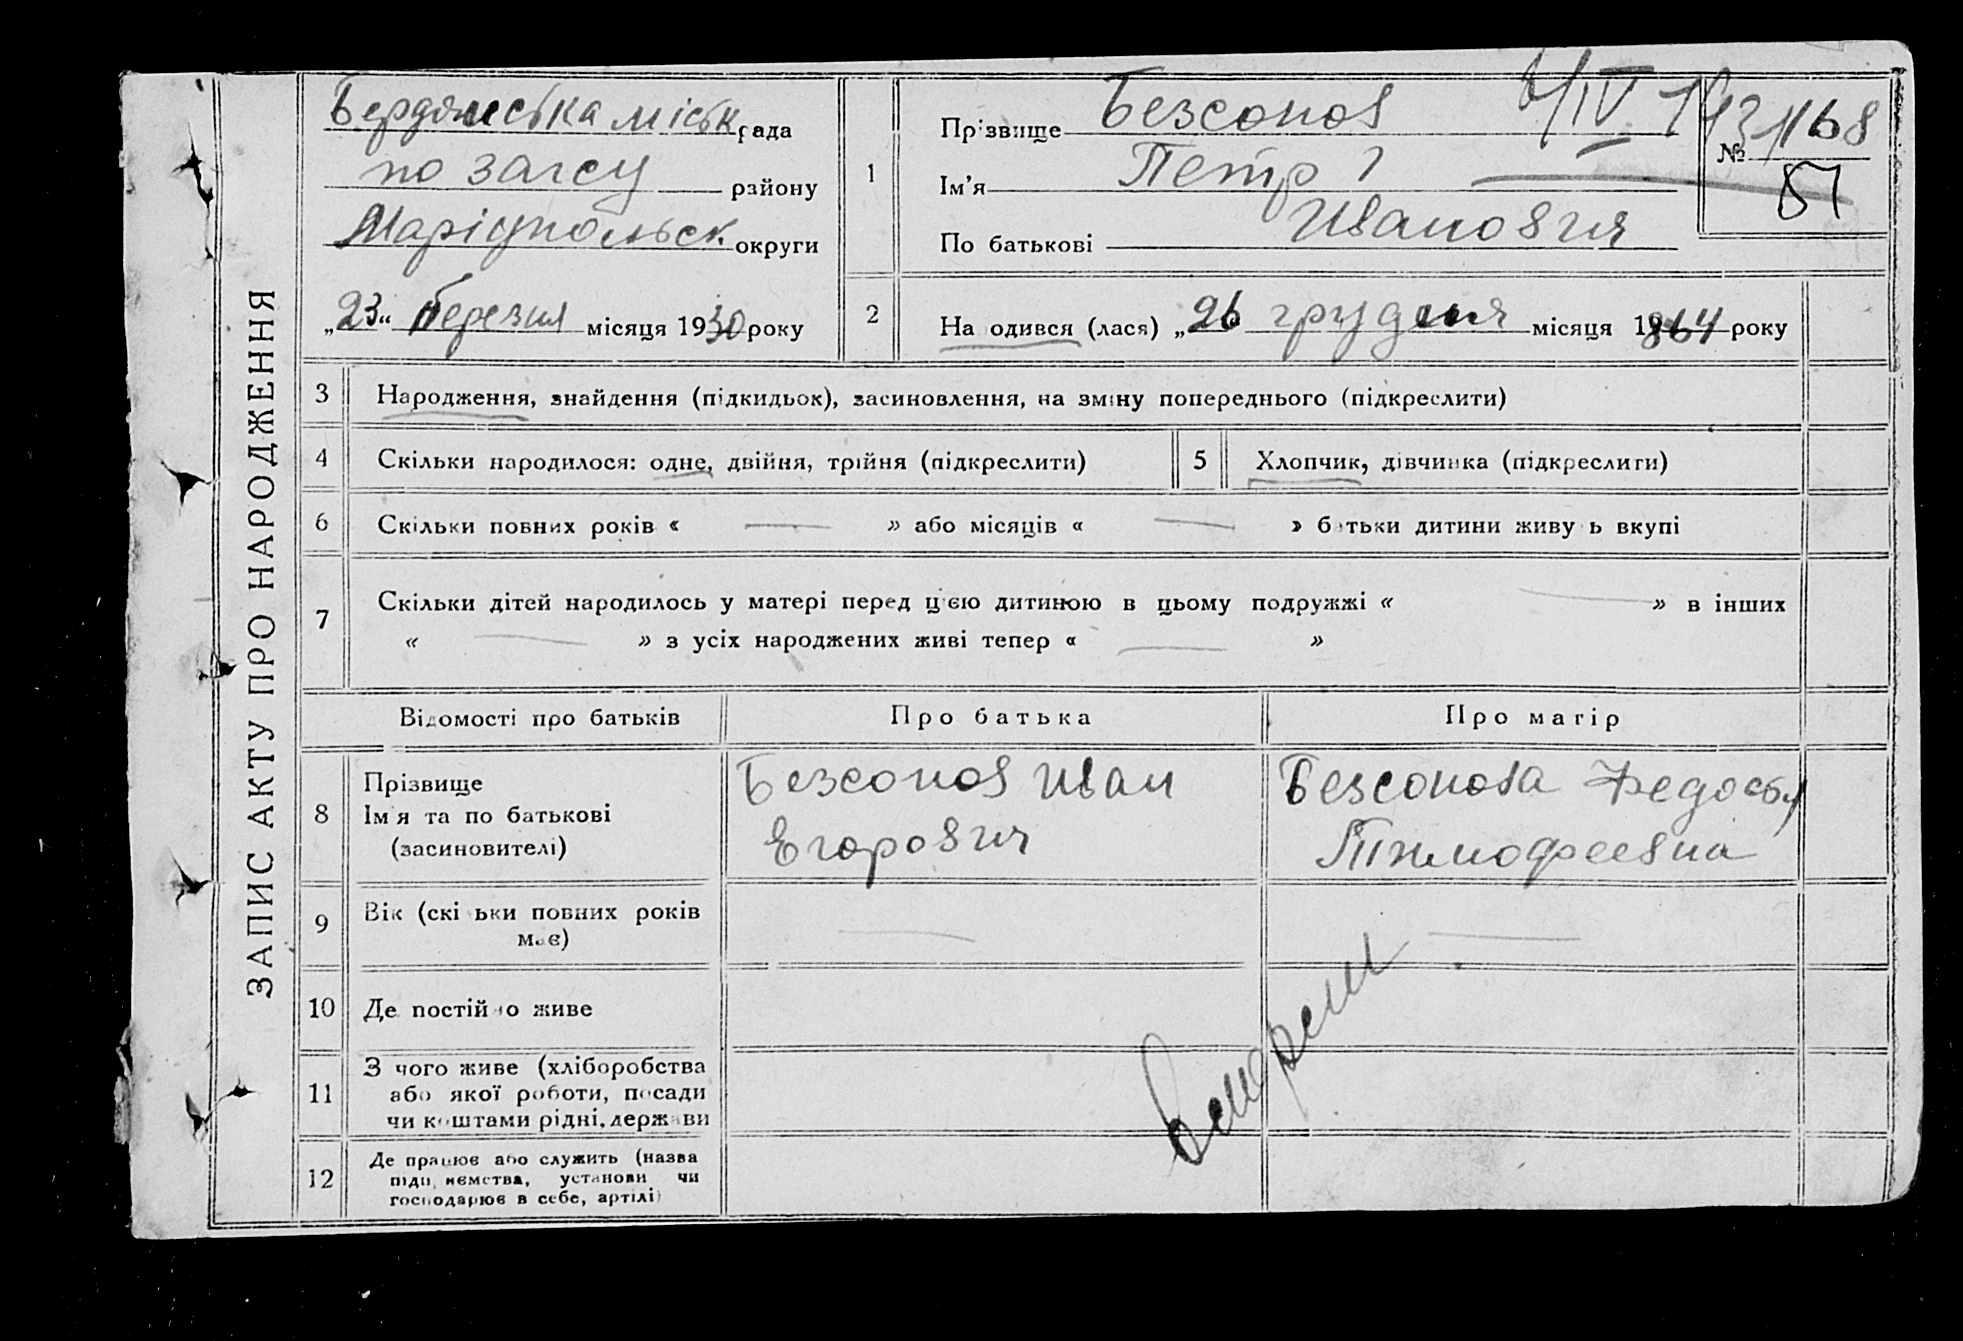 ЗАПИС АКТУ ПРО НАРОДЖЕННЯ
Бердянська міськ рада
по загсу району
Маріупольськ. округи
„23“ березня місяця 1930 року
1
Прізвище Безсонов
Ім'я Петр
По батькові Иванович
IV
№ 168
2
На одився (лася) „26 грудня місяця 1864 року
3 Народження, знайдення (підкидьок), засиновлення, на зміну попереднього (підкреслити)
4 Скільки народилося: одне, двійня, трійня (підкреслити)
5 Хлопчик, дівчинка (підкреслити)
6 Скільки повних років « — » або місяців « — » батьки дитини живу ь вкупі
7 Скільки дітей народилось у матері перед цією дитиною в цьому подружжі « — » в інших
« — » з усіх народжених живі тепер « — »
Відомості про батьків
Про батька
Про матір
8
Прізвище
Ім я та по батькові
(засиновителі)
Безсонов Иван
Егорович
Безсонова Федосья
Тимофеевна
9
Вік (скі ьки повних років
має)
—
—
10 Де постійно живе
11
З чого живе (хліборобства
або якої роботи, посади
чи коштами рідні, держави
12
Де працює або служить (назва
підприємства, установи чи
господарює в себе, артілі)